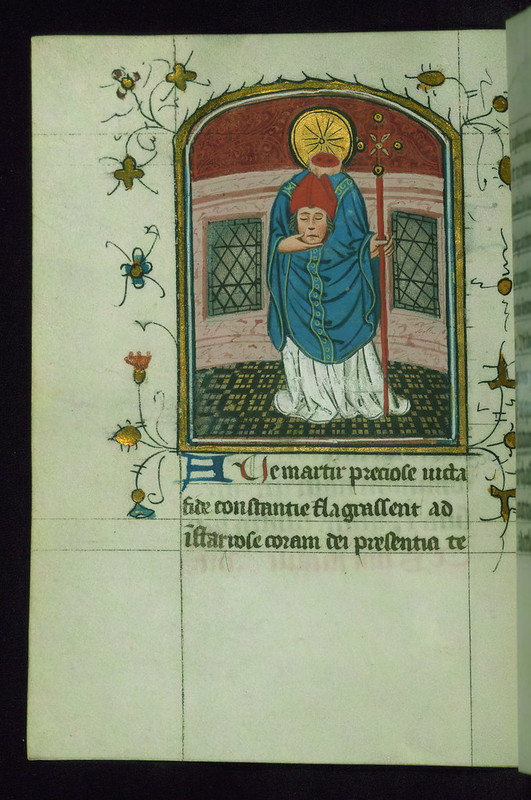 AVe martir preciose iucta
fide constantie flagrassent ad
istariose coram dei presentia te